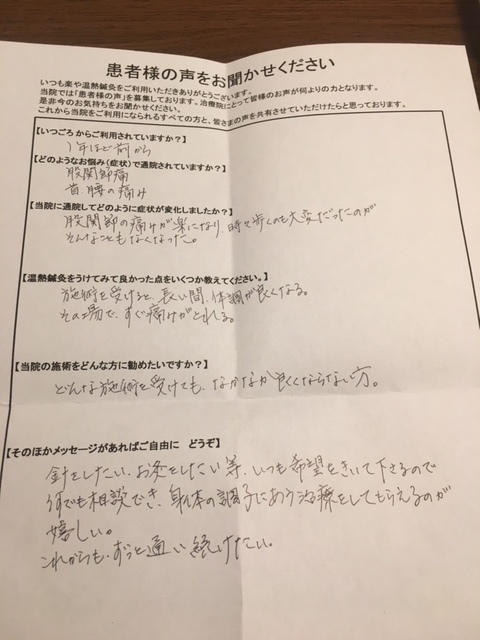 患者様の声をお聞かせください
いつも楽や温熱鍼灸をご利用いただきありがとうございます。
当院では「患者様の声」を募集しております。治療院にとって皆様のお声が何よりの力となります。
是非今のお気持ちをお聞かせください。
これから当院をご利用になられるすべての方と、皆さまの声を共有させていただけたらと思っております。
【いつごろ からご利用されていますか？】
1年ほど前から
【どのようなお悩み（症状）で通院されていますか？】
股関節痛
首、腰の痛み
【当院に通院してどのように症状が変化しましたか？】
股関節の痛みが楽になり、時々歩くのも大変だったのが
そんなこともなくなった。
【温熱鍼灸をうけてみて良かった点をいくつか教えてください。】
施術を受けると、長い間、体調が良くなる。
その場で、すぐ痛みがとれる。
【当院の施術をどんな方に勧めたいですか？】
どんな施術を受けても、なかなか良くならない方。
【そのほかメッセージがあればご自由に どうぞ】
針をしたい、お灸をしたい等、いつも希望をきいて下さるので
何でも相談でき、身体の調子にあう治療をしてもらえるのが
嬉しい。
これからも、ずっと通い続けたい。